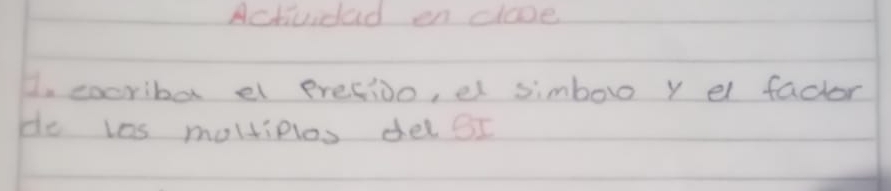 Actividad en clase
1. escriba el Prefijo, el simbolo y el factor
de los moltiplos del SI